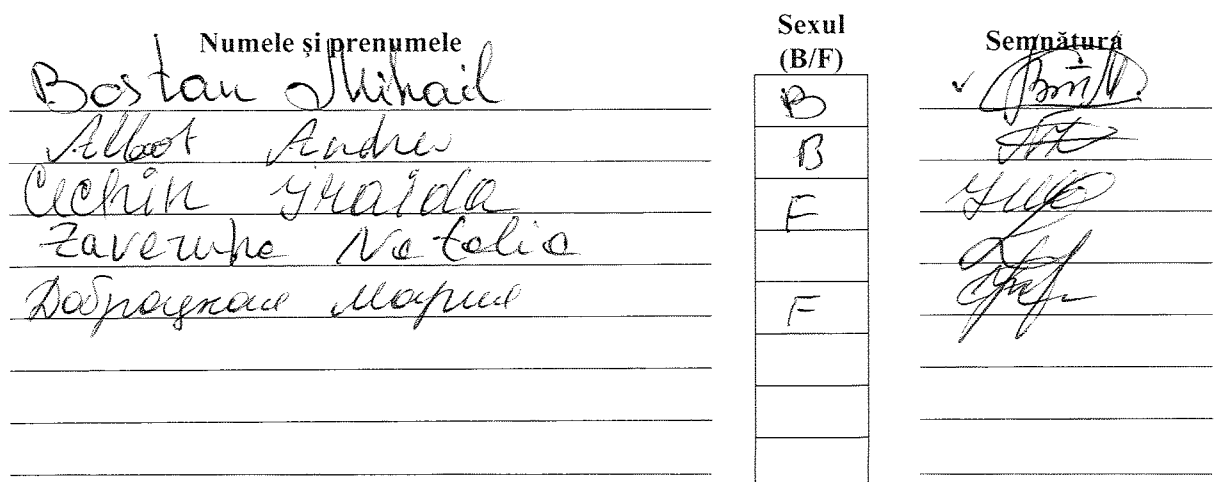 Numele și prenumele Sexul (B/F) Semnătura
Bostan Mihail B
Albot Andrei B
Cechin Iraida F
Zaveruha Natalia
Доброцкая Мария F